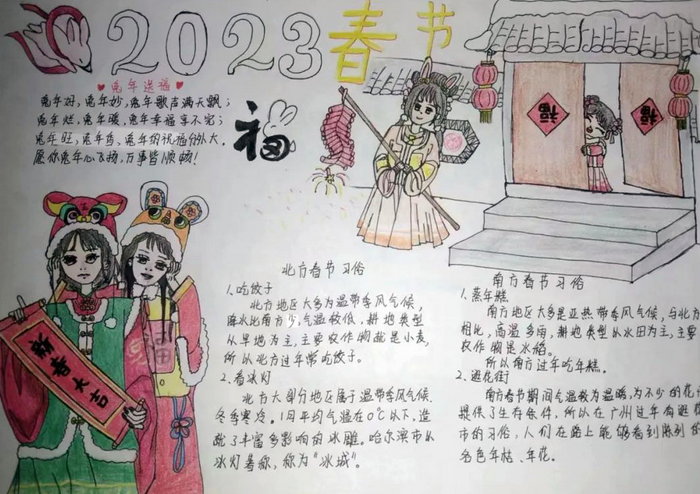 2023春节
兔年送福
兔年好，兔年妙，兔年歌声满天飘；
兔年旺，兔年喜，兔年的祝福分外大。
愿你兔年心飞扬，万事皆顺畅！
福
福
福
新春大吉
北方春节习俗
1.吃饺子
北方地区大多为温带季风气候，
降水比南方少，气温较低，耕地类型
从旱地为主，主要农作物就是小麦，
所以北方过年常吃饺子。
2.看冰灯
北方大部分地区属于温带季风气候、
冬季寒冷。1月平均气温在0℃以下，造
就了丰富多影响的冰雕。哈尔滨市以
冰灯著称，称为“冰城”。
南方春节习俗
1.蒸年糕
南方地区大多是亚热带季风气候，与北方
相比，高温多雨，耕地类型从水田为主，主要
农作物是水稻。
所以南方过年吃年糕。
2.逛花街
南方春节期间气温较为温暖，为不少的花
提供了生存条件，所以在广州过年有逛
市的习俗，人们在路上能够看到陈列的
各色年桔、年花。